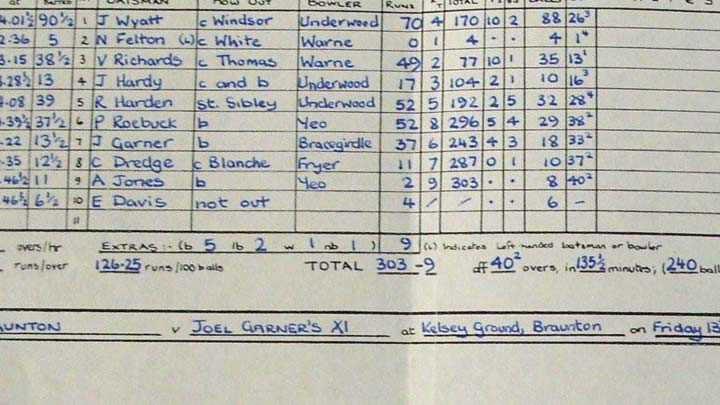 BATSMAN HOW OUT BOWLER RUNS TOTAL
4.01½ 90½ 1 J Wyatt c Windsor Underwood 70 4 170 10 2 88 26³
2.36 5 2 N Felton (L) c White Warne 0 1 4 · · 4 1⁴
3.15 38½ 3 V Richards c Thomas Warne 49 2 77 10 1 35 13¹
3.28½ 13 4 J Hardy c and b Underwood 17 3 104 2 1 10 16³
4.08 39 5 R Harden st. Sibley Underwood 52 5 192 2 5 32 28⁴
.39½ 37½ 6 P Roebuck b Yeo 52 8 296 5 4 29 38²
.22 13½ 7 J Garner b Bracegirdle 37 6 243 4 3 18 33²
.35 12½ 8 C Dredge c Blanche Fryer 11 7 287 0 1 10 37²
.46½ 11 9 A Jones b Yeo 2 9 303 · · 8 40²
.46½ 6½ 10 E Davis not out 4 / / · · 6 –
11
overs/hr EXTRAS :- (b 5 lb 2 w 1 nb 1 ) 9 (L) Indicates left-handed batsman or bowler
runs/over 126·25 runs/100 balls TOTAL 303 -9 off 40² overs, in 135½ minutes; (240 ball
AUNTON v JOEL GARNER'S XI at Kelsey Ground, Braunton on Friday 13